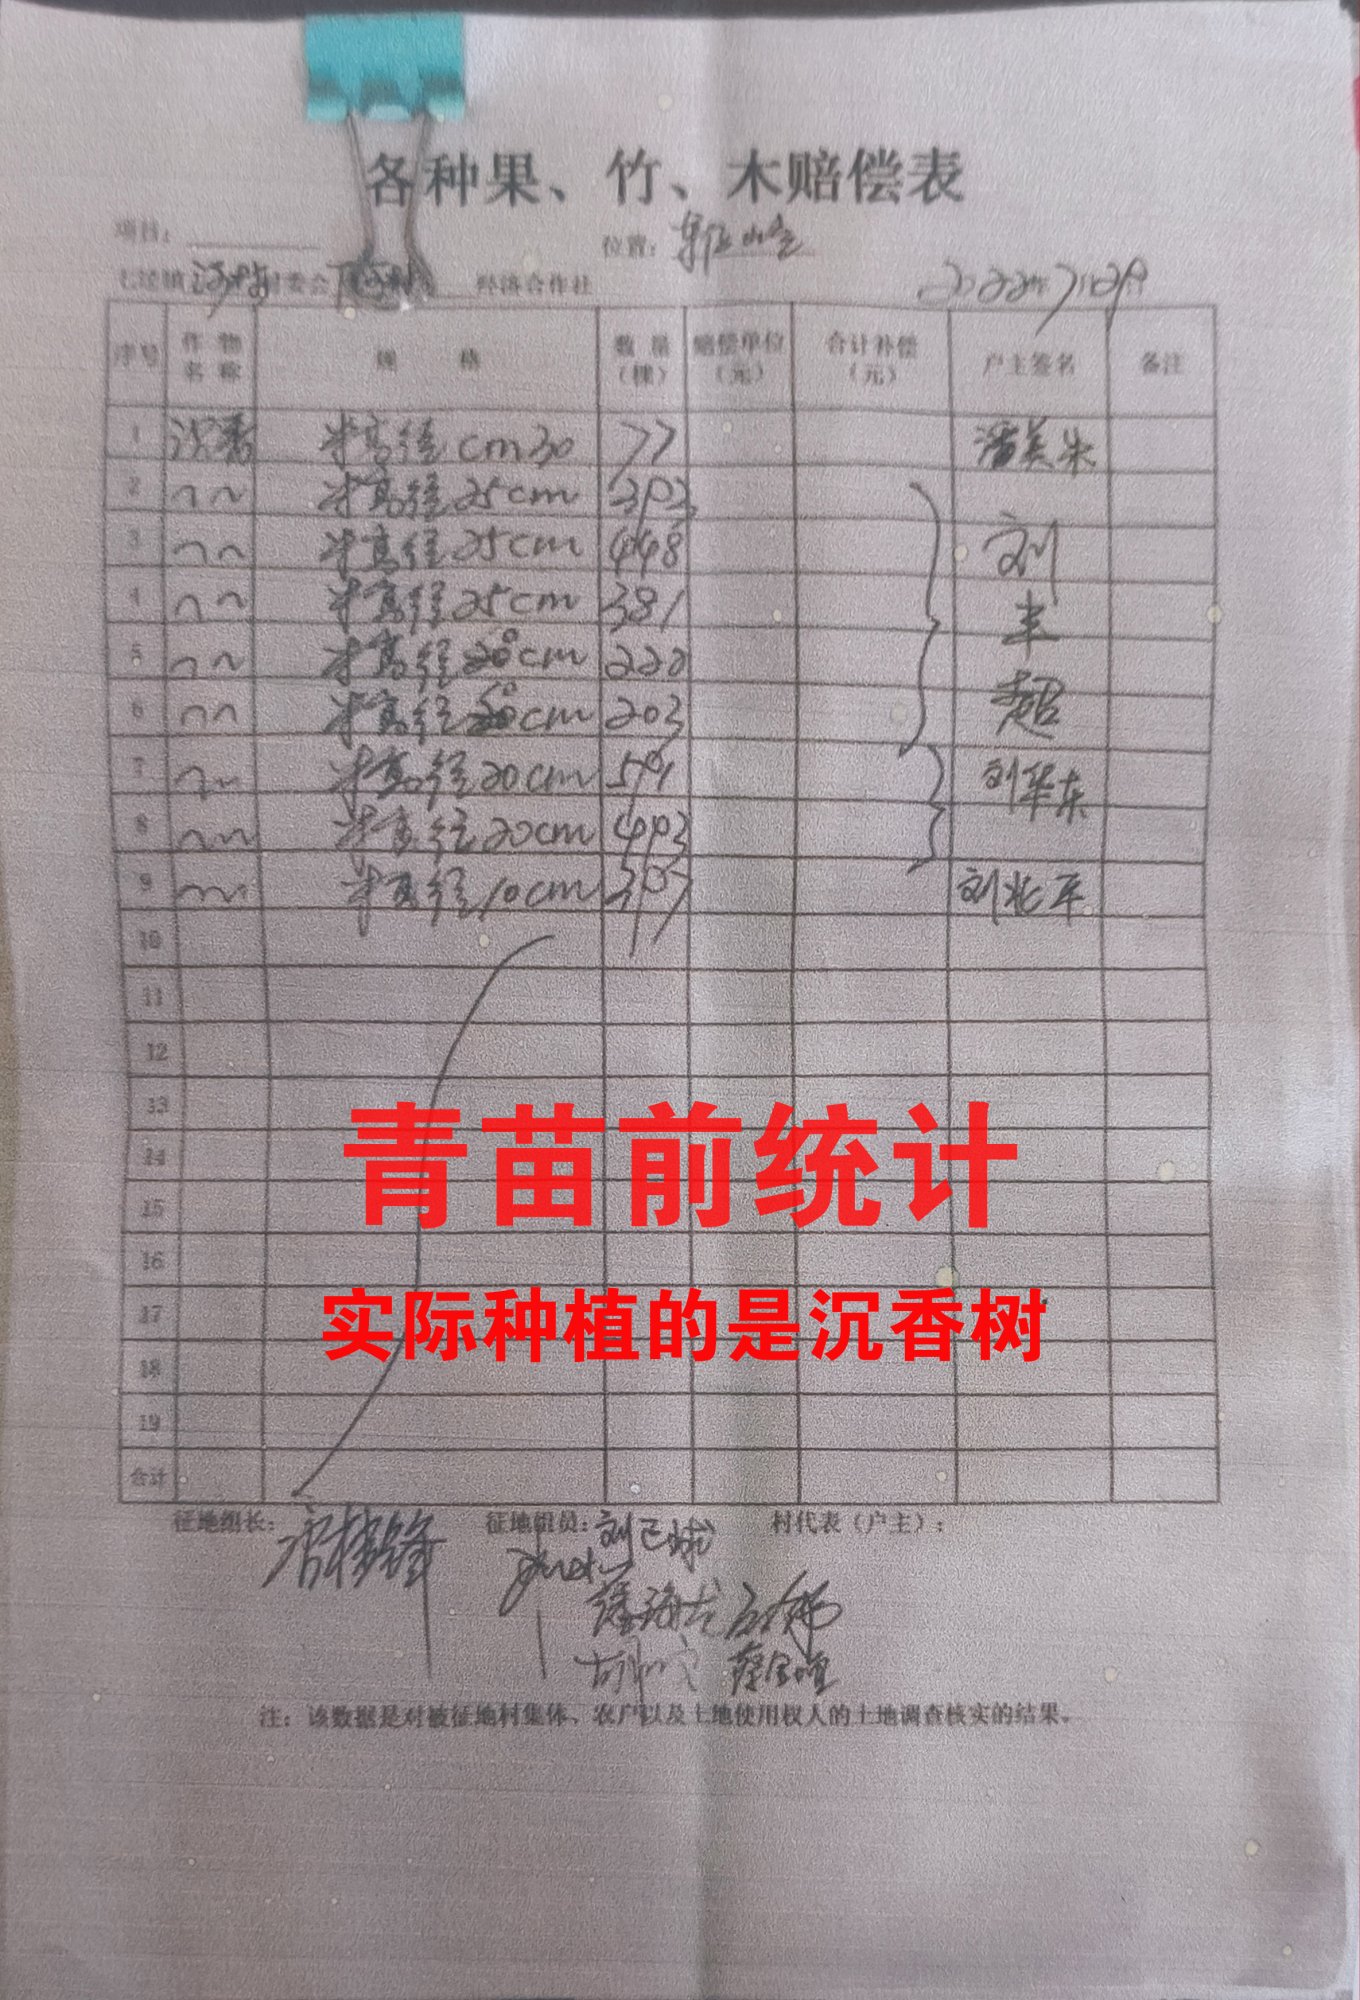 各种果、竹、木赔偿表
项目：
位置：
村委会 经济合作社
2022年7月29日
序号 作物名称 规格 数量（棵） 赔偿单位（元） 合计补偿（元） 户主签名 备注
1 沉香 米高径cm30 77 潘美朱
2 〃 米高径25cm 393
3 〃 米高径25cm 448 刘
4 〃 米高径25cm 381
5 〃 米高径20cm 220 丰
6 〃 米高径20cm 203 超
7 〃 米高径20cm 591 刘华东
8 〃 米高径20cm 493
9 〃 米高径10cm 397 刘兆平
10
11
12
13
青苗前统计
14
15
16
17
实际种植的是沉香树
18
19
合计
征地组长： 征地组员： 村代表（户主）：
注：该数据是对被征地村集体、农户以及土地使用权人的土地调查核实的结果。